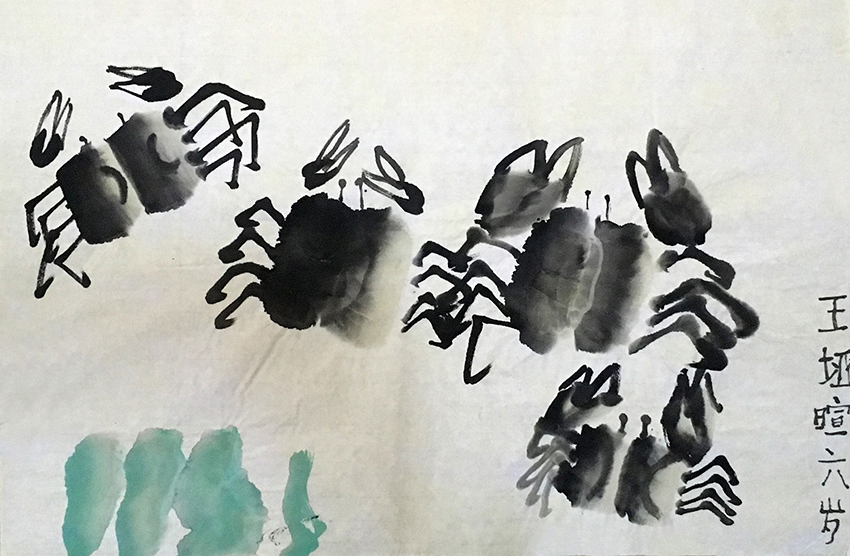 王垭暄六岁